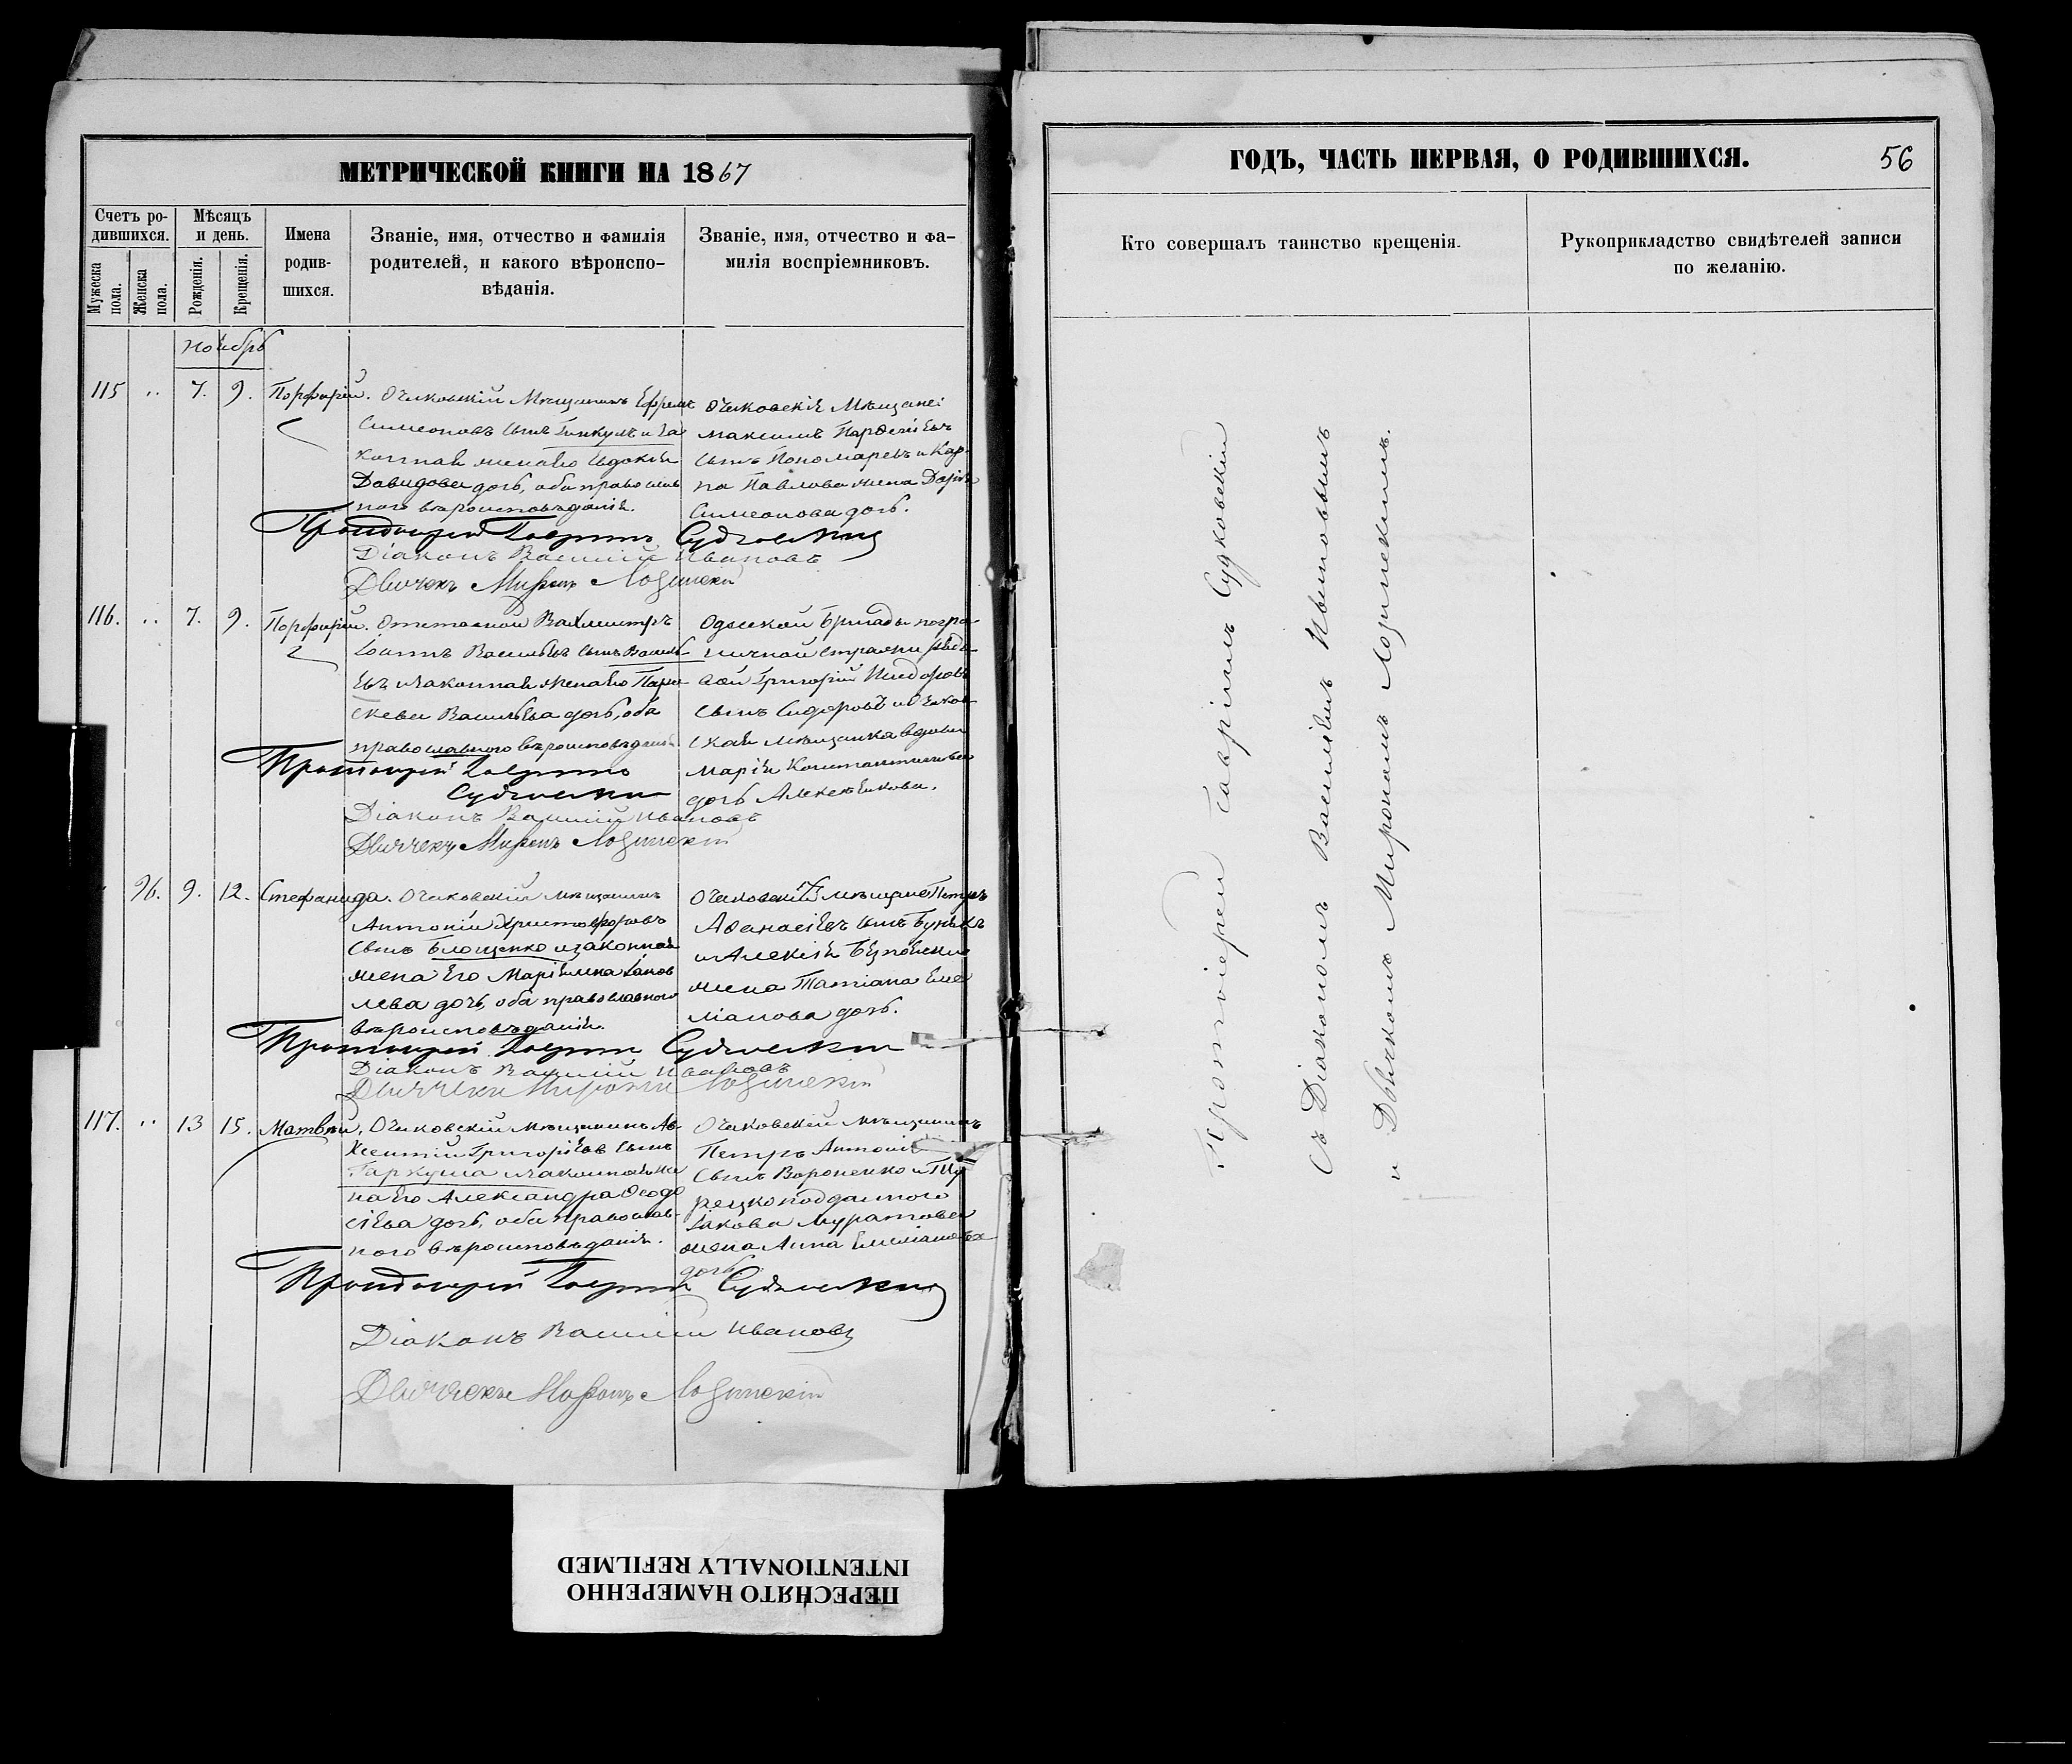 МЕТРИЧЕСКОЙ КНИГИ НА 1867
Счетъ ро-
дившихся.
Мѣсяцъ
и день.
Мужеска
пола.
Женска
пола.
Рожденія.
Крещенія.
Имена
родив-
шихся.
Званіе, имя, отчество и фамилія
родителей, и какого вѣроиспо-
вѣданія.
Званіе, имя, отчество и фа-
милія воспріемниковъ.
Ноябрь
115 „ 7. 9. Порфирій.
Очаковскій Мѣщанинъ Ефремъ
Симеоновъ сынъ и за
конная жена его Евдокія
Давидова дочь, оба православ
наго вѣроисповѣданія.
Очаковскіе Мѣщане:
Максимъ Парѳеніевъ
сынъ Пономаревъ и Кар-
па Павлова жена Дарія
Симеонова дочь.
Протоіерей Гавріилъ Судковскій
Діаконъ Василій Ивановъ
Дьячекъ Миронъ Лозинскій
116. „ 7. 9. Порфирій.
Отставной Вахмистръ
Іоаннъ Васильевъ сынъ Василь-
евъ и законная жена его Пара-
скева Васильева дочь, оба
православнаго вѣроисповѣданія.
Одесской Бригады погра-
ничной стражи рядо-
вой Григорій Исидоровъ
сынъ Сидоровъ и Очаков-
ская мѣщанка вдова
Марія Константинова
дочь Алексѣенкова.
Протоіерей Гавріилъ
Судковскій
Діаконъ Василій Ивановъ
Дьячекъ Миронъ Лозинскій
96. 9. 12. Стефанида.
Очаковскій мѣщанинъ
Антоній Христофоровъ
сынъ Блощенко и законная
жена его Маріамна Іаков
лева дочь, оба православнаго
вѣроисповѣданія.
Очаковскіе мѣщане Петръ
Аѳанасіевъ сынъ
и Алексія
жена Татіана Еме
ліанова дочь.
Протоіерей Гавріилъ Судковскій
Діаконъ Василій Ивановъ
Дьячекъ Миронъ Лозинскій
117. „ 13 15. Матвѣй.
Очаковскій мѣщанинъ Ав-
ксентій Григорьевъ сынъ
Гаркуша и законная же
на его Александра Ѳеодо
сіева дочь, оба православ-
наго вѣроисповѣданія.
Очаковскій мѣщанинъ
Петръ Антоніевъ
сынъ Вороненко и Ту
рецкоподданнаго
Іакова Муратова
жена Анна Емеліанова
дочь
Протоіерей Гавріилъ Судковскій
Діаконъ Василій Ивановъ
Дьячекъ Миронъ Лозинскій
ГОДЪ, ЧАСТЬ ПЕРВАЯ, О РОДИВШИХСЯ.
56
Кто совершалъ таинство крещенія.
Рукоприкладство свидѣтелей записи
по желанію.
Протоіерей Гавріилъ Судковскій
съ Діакономъ Василіемъ Ивановымъ
и Дьячкомъ Мирономъ Лозинскимъ.
ПЕРЕСНЯТО НАМЕРЕННО
INTENTIONALLY REFILMED